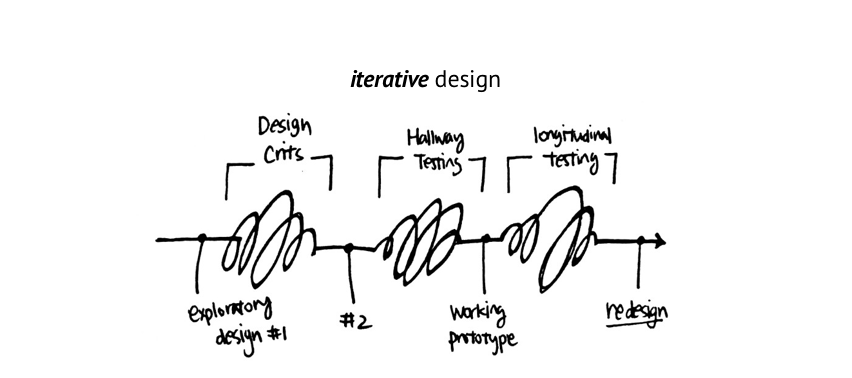 iterative design
Design
Crits
Hallway
Testing
longitudinal
testing
exploratory
design #1
#2
working
prototype
redesign